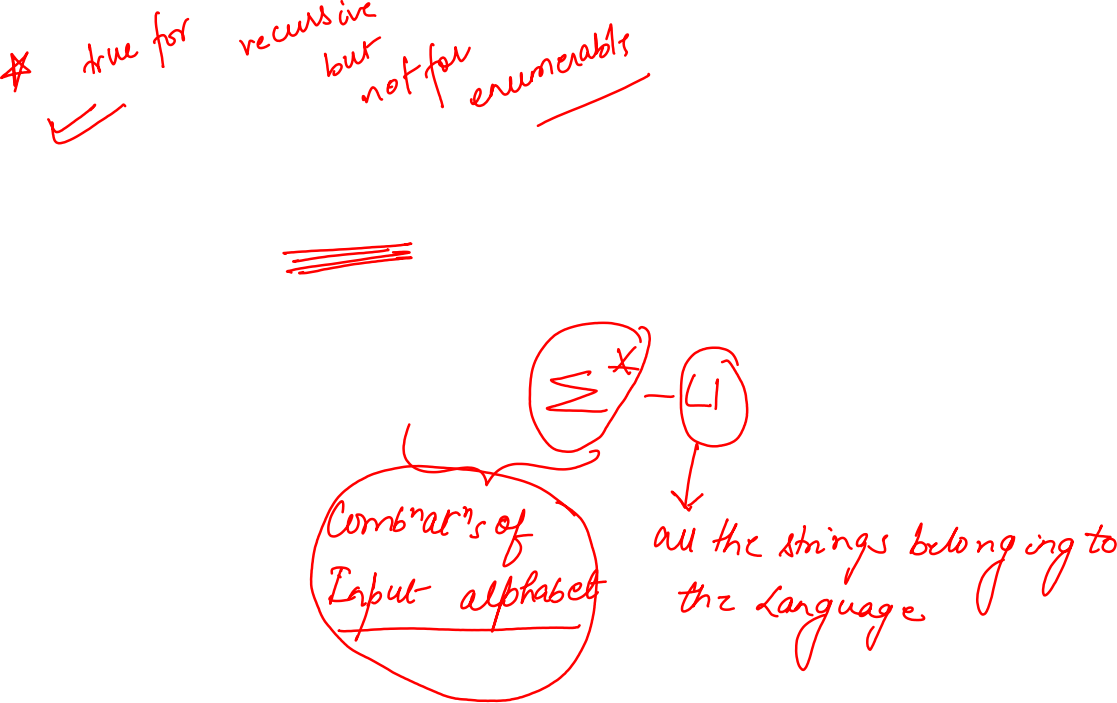 ☆ true for recursive
but
not for enumerable
Σ* - L1
Combⁿatⁿs of
Input alphabet
all the strings belonging to
the Language